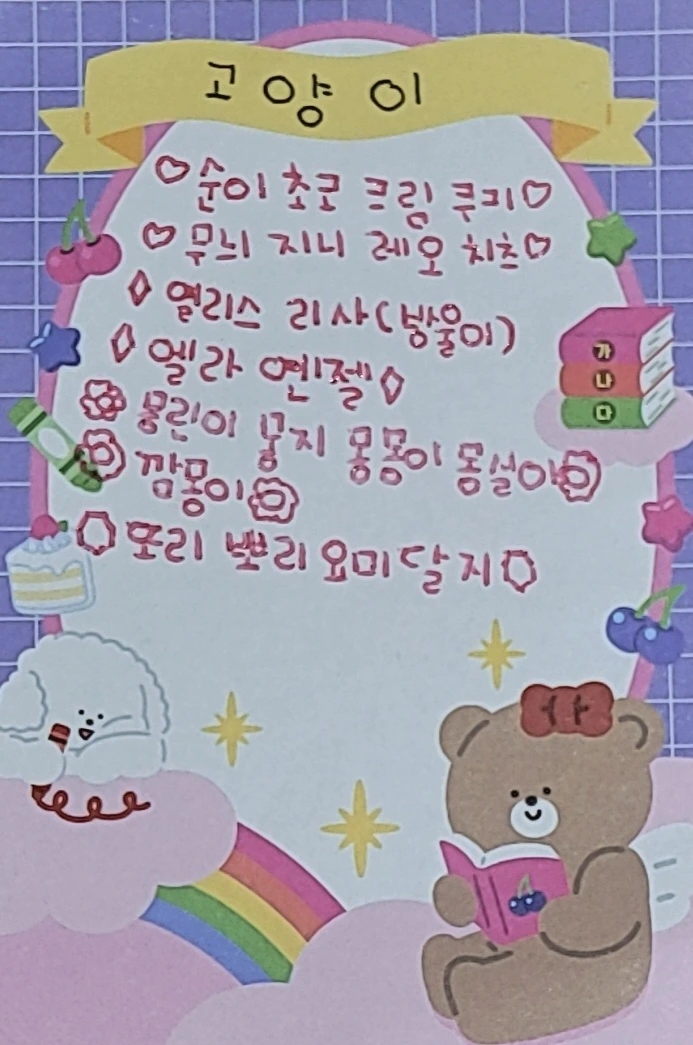 고양이
♡순이 초코 크림 쿠키♡
♡무늬 지니 레오 치츠♡
◇엘리스 리사(방울이)
◇엘라 엔젤◇
몽린이 뭉지 몽몽이 몽실이
깜몽이
또리 뽀리 요미 달지
가
나
다